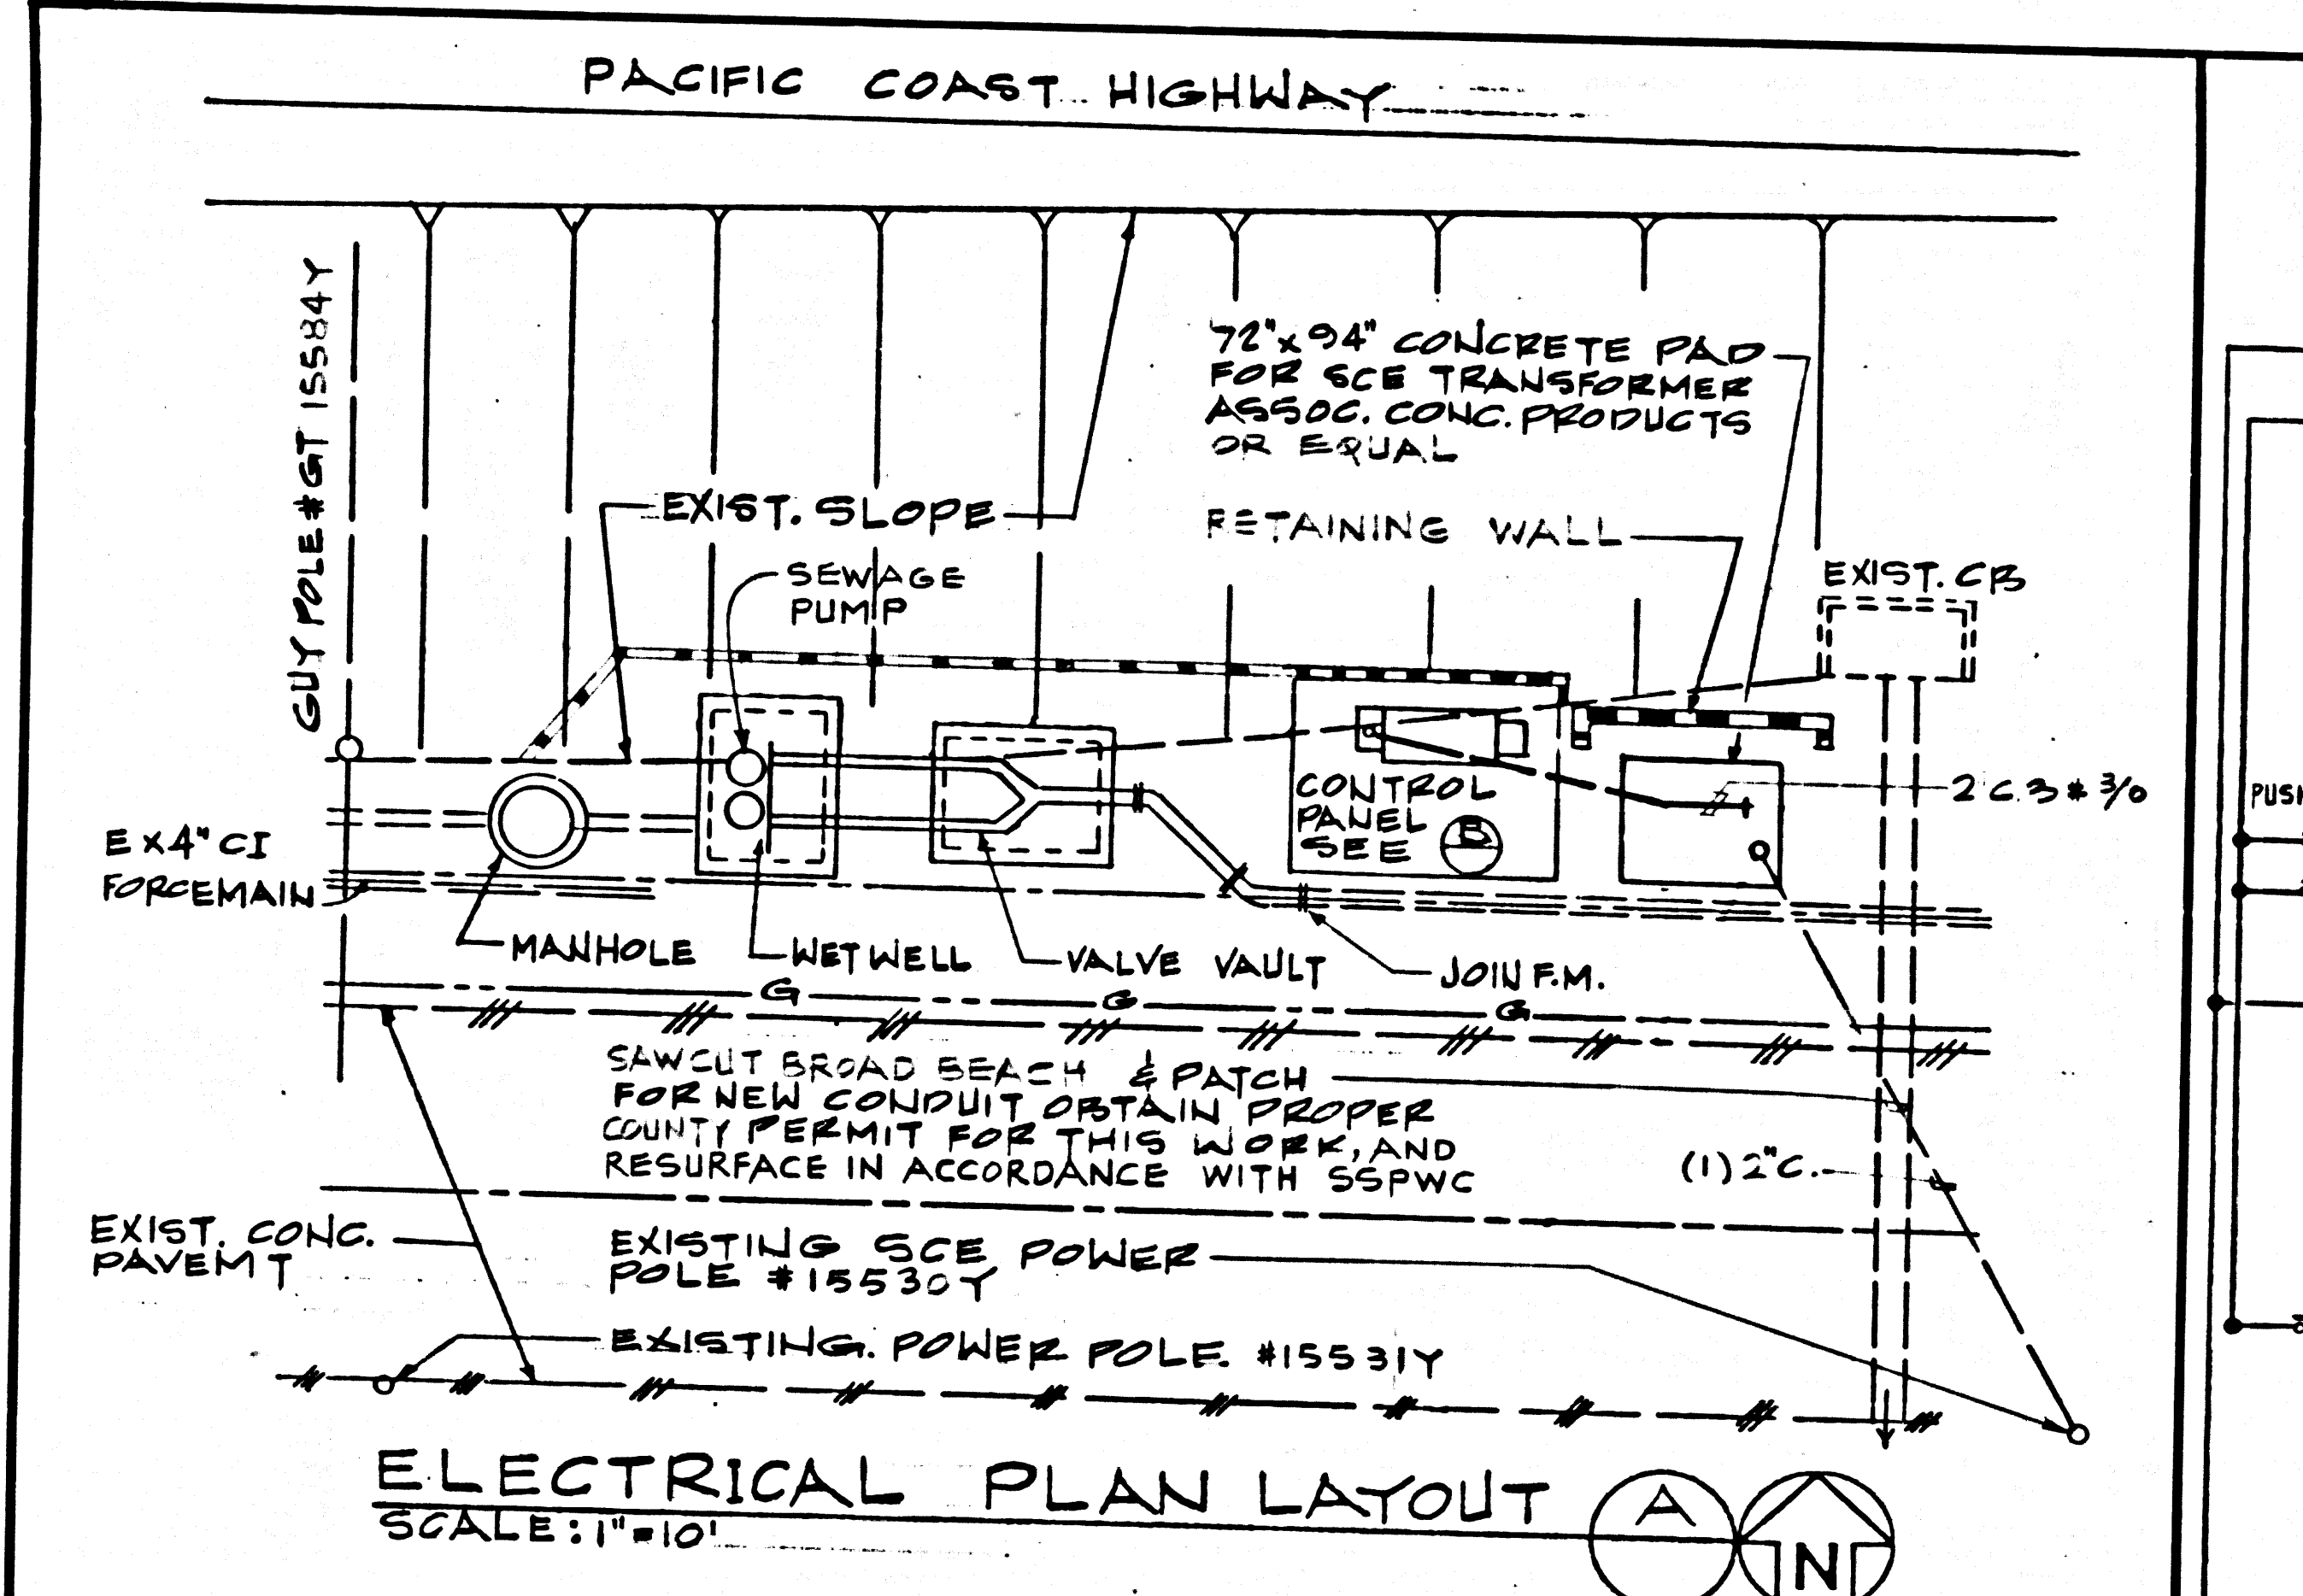 PACIFIC COAST HIGHWAY
GUY POLE #GT 15584Y
72"x94" CONCRETE PAD
FOR SCE TRANSFORMER
ASSOC. CONC. PRODUCTS
OR EQUAL
EXIST. SLOPE
RETAINING WALL
SEWAGE
PUMP
EXIST. CB
CONTROL
PANEL
SEE
B
2"C. 3 # 3/0
EX4" CI
FORCEMAIN
MANHOLE
WETWELL
VALVE VAULT
JOIN F.M.
G G G
SAWCUT BROAD BEACH & PATCH
FOR NEW CONDUIT OBTAIN PROPER
COUNTY PERMIT FOR THIS WORK, AND
RESURFACE IN ACCORDANCE WITH SSPWC
(1) 2"C.
EXIST. CONC.
PAVEMT
EXISTING SCE POWER
POLE #15530Y
EXISTING. POWER POLE. #15531Y
ELECTRICAL PLAN LAYOUT
SCALE: 1"=10'
A
N